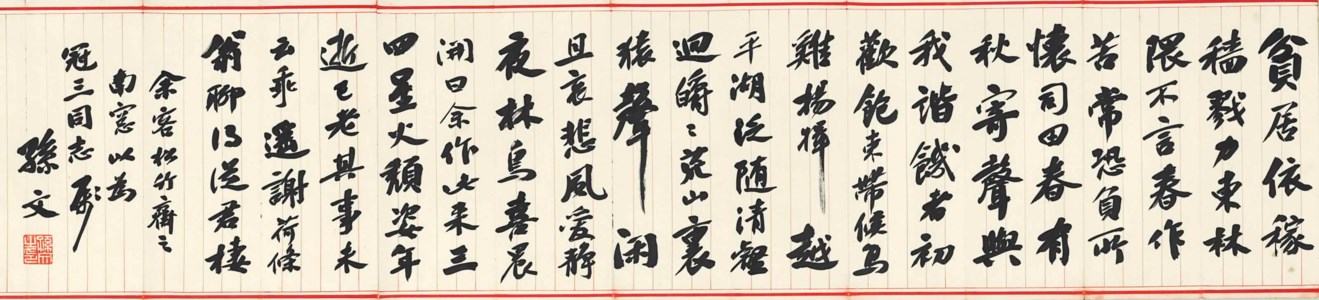 貧居依稼
穡戮力東林
隈不言春作
苦常恐負所
懷司田眷有
秋寄聲與
我諧饑者初
歡飽束帶候鳥
雞楊檝越
平湖泛隨清壑
迴皭〻荒山裏
猿聲閑
且哀悲風愛靜
夜林鳥喜晨
開曰余作此來三
四星火頹姿年
逝已老其事未
云乖遥謝荷條
翁聊得從君棲
余客松竹齋之
南窓以為
冠三同志
孫文